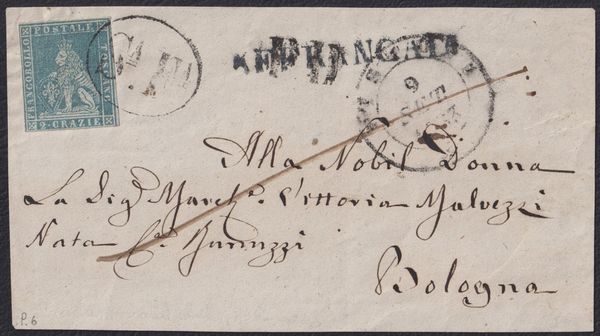 FRANCOBOLLO POSTALE TOSCANO
2 CRAZIE
PD
9
SET
Alla Nobil Donna
La Sig.ª March.ª Vittoria Malvezzi
Nata C.
Bologna
P.6